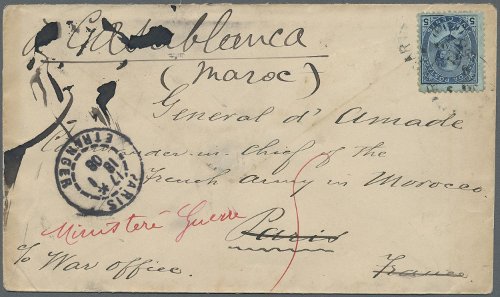 à Casablanca
(Maroc)
General d'Amade
Commander-in-chief of the
French army in Morocco.
Ministère Guerre
Paris
c/o War office.
France
PARIS
ETRANGER
17
18
1
08
5
5